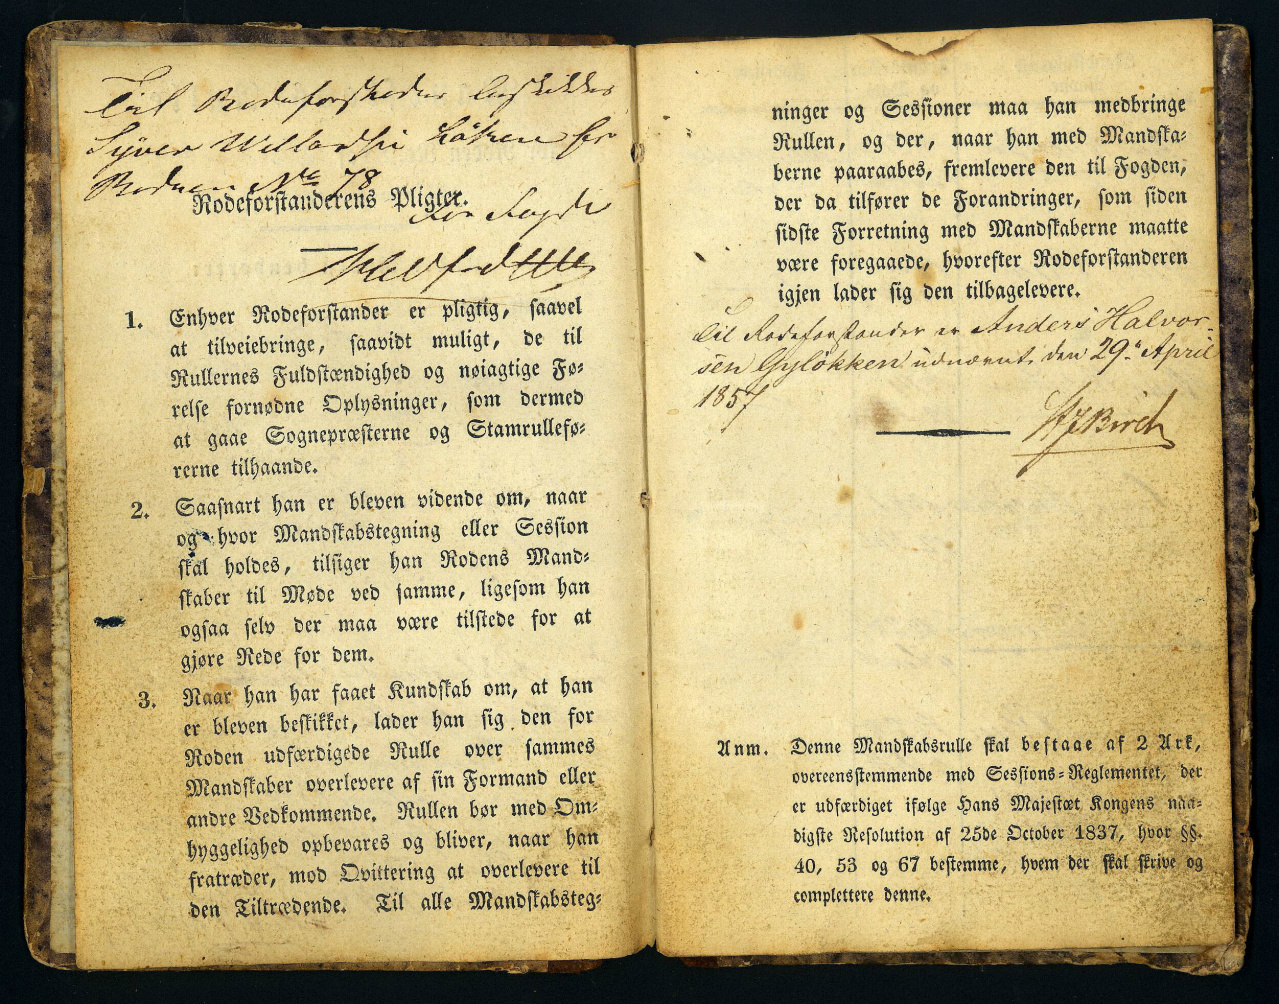 Til Rodeforstander beskikkes
Syver Løken for
Roden No 78
Rodeforstanderens Pligter.
1. Enhver Rodeforstander er pligtig, saavel
at tilveiebringe, saavidt muligt, de til
Rullernes Fuldstændighed og nøiagtige Fø-
relse fornødne Oplysninger, som dermed
at gaae Sognepræsterne og Stamrullefø-
rerne tilhaande.
2. Saasnart han er bleven vidende om, naar
og hvor Mandskabstegning eller Session
skal holdes, tilsiger han Rodens Mand-
skaber til Møde ved samme, ligesom han
ogsaa selv der maa være tilstede for at
gjøre Rede for dem.
3. Naar han har faaet Kundskab om, at han
er bleven beskikket, lader han sig den for
Roden udfærdigede Rulle over sammes
Mandskaber overlevere af sin Formand eller
andre Vedkommende. Rullen bør med Om-
hyggelighed opbevares og bliver, naar han
fratræder, mod Qvittering at overlevere til
den Tiltrædende. Til alle Mandskabsteg-
ninger og Sessioner maa han medbringe
Rullen, og der, naar han med Mandska-
berne paaraabes, fremlevere den til Fogden,
der da tilfører de Forandringer, som siden
sidste Forretning med Mandskaberne maatte
være foregaaede, hvorefter Rodeforstanderen
igjen lader sig den tilbagelevere.
Til Rodeforstander er Anders Halvor-
sen Gyløkken udnævnt den 29de April
1857
Birch
Anm. Denne Mandskabsrulle skal bestaae af 2 Ark,
overeensstemmende med Sessions-Reglementet, der
er udfærdiget ifølge Hans Majestæt Kongens naa-
digste Resolution af 25de October 1837, hvor §§.
40, 53 og 67 bestemme, hvem der skal skrive og
complettere denne.